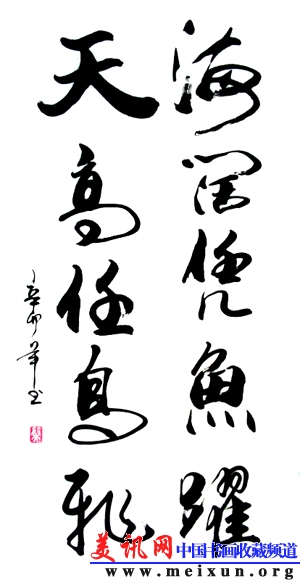 海阔凭魚躍
天高任鳥飛
辛卯
美讯网 中国书画收藏频道
www.meixun.org